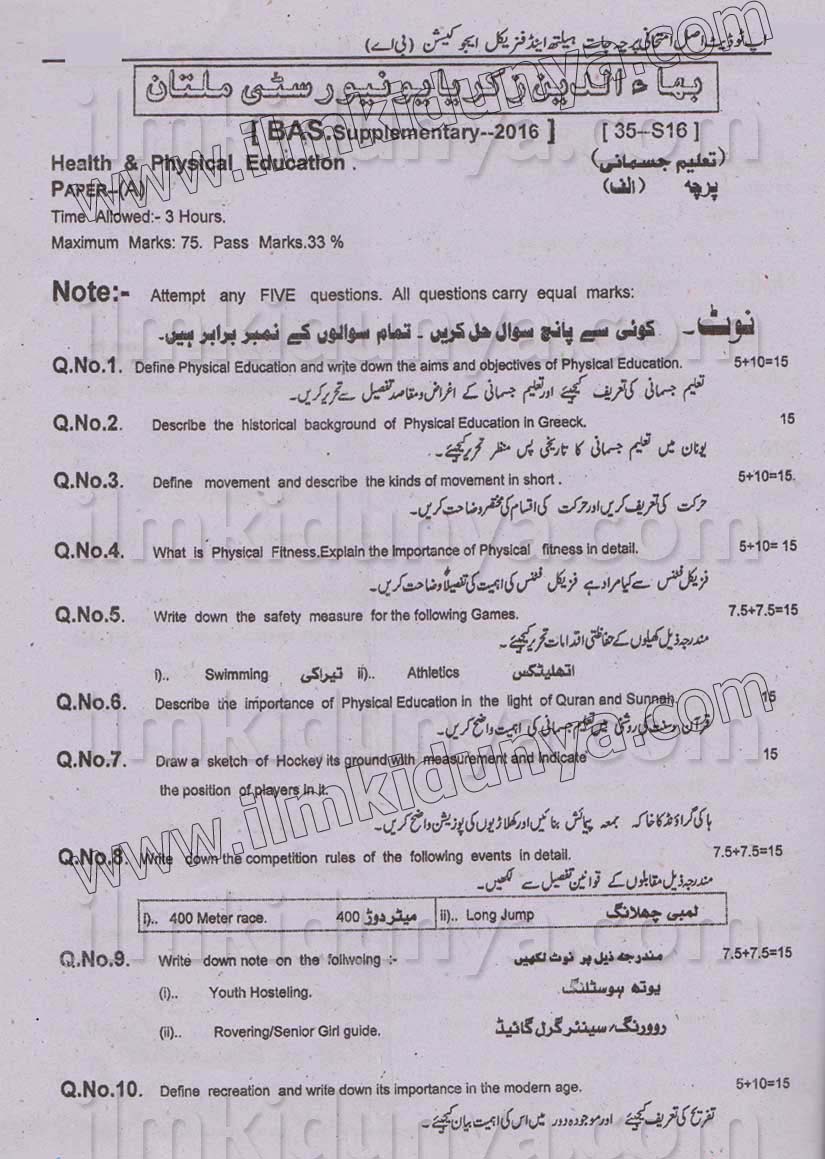 اپ ٹو ڈیٹ اصل امتحانی پرچہ جات ہیلتھ اینڈ فزیکل ایجوکیشن (بی اے)
بہاء الدین زکریا یونیورسٹی ملتان
[ BAS.Supplementary--2016 ] [ 35--S16 ]
Health & Physical Education . (تعلیم جسمانی)
PAPER--(A) پرچہ (الف)
Time Allowed:- 3 Hours.
Maximum Marks: 75. Pass Marks.33 %
Note:- Attempt any FIVE questions. All questions carry equal marks:
نوٹ۔ کوئی سے پانچ سوال حل کریں ۔ تمام سوالوں کے نمبر برابر ہیں۔
Q.No.1. Define Physical Education and write down the aims and objectives of Physical Education. 5+10=15
تعلیم جسمانی کی تعریف کیجیئے اور تعلیم جسمانی کے اغراض و مقاصد تفصیل سے تحریر کریں۔
Q.No.2. Describe the historical background of Physical Education in Greeck. 15
یونان میں تعلیم جسمانی کا تاریخی پس منظر تحریر کیجیئے۔
Q.No.3. Define movement and describe the kinds of movement in short . 5+10=15.
حرکت کی تعریف کریں اور حرکت کی اقسام کی مختصر وضاحت کریں۔
Q.No.4. What is Physical Fitness.Explain the Importance of Physical fitness in detail. 5+10= 15
فزیکل فٹنس سے کیا مراد ہے فزیکل فٹنس کی اہمیت کی تفصیلاً وضاحت کریں۔
Q.No.5. Write down the safety measure for the following Games. 7.5+7.5=15
مندرجہ ذیل کھیلوں کے حفاظتی اقدامات تحریر کیجیئے۔
i).. Swimming تیراکی ii).. Athletics اتھلیٹکس
Q.No.6. Describe the importance of Physical Education in the light of Quran and Sunnah. 15
قرآن و سنت کی روشنی میں تعلیم جسمانی کی اہمیت واضح کریں۔
Q.No.7. Draw a sketch of Hockey its ground with measurement and Indicate 15
the position of players in it.
ہاکی گراؤنڈ کا خاکہ بمعہ پیمائش بنائیں اور کھلاڑیوں کی پوزیشن واضح کریں۔
Q.No.8. Write down the competition rules of the following events in detail. 7.5+7.5=15
مندرجہ ذیل مقابلوں کے قوانین تفصیل سے لکھیں۔
i).. 400 Meter race. 400 میٹر دوڑ ii).. Long Jump لمبی چھلانگ
Q.No.9. Write down note on the follwoing :- مندرجہ ذیل پر نوٹ لکھیں 7.5+7.5=15
(i).. Youth Hosteling. یوتھ ہوسٹلنگ
(ii).. Rovering/Senior Girl guide. روورنگ/سینئر گرل گائیڈ
Q.No.10. Define recreation and write down its importance in the modern age. 5+10=15
تفریح کی تعریف کیجیئے اور موجودہ دور میں اس کی اہمیت بیان کیجیئے۔
www.ilmkidunya.com
www.ilmkidunya.com
ilmkidunya.com
ilmkidunya.com
ilmkidunya.com
ilmkidunya.com
ilmkidunya.com
ilmkidunya.com